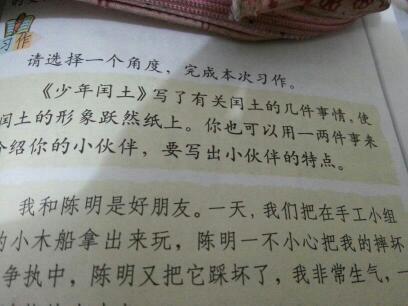 习作
请选择一个角度，完成本次习作。
《少年闰土》写了有关闰土的几件事情，使
闰土的形象跃然纸上。你也可以用一两件事来
介绍你的小伙伴，要写出小伙伴的特点。
我和陈明是好朋友。一天，我们把在手工小组
的小木船拿出来玩，陈明一不小心把我的摔坏
争执中，陈明又把它踩坏了，我非常生气，一